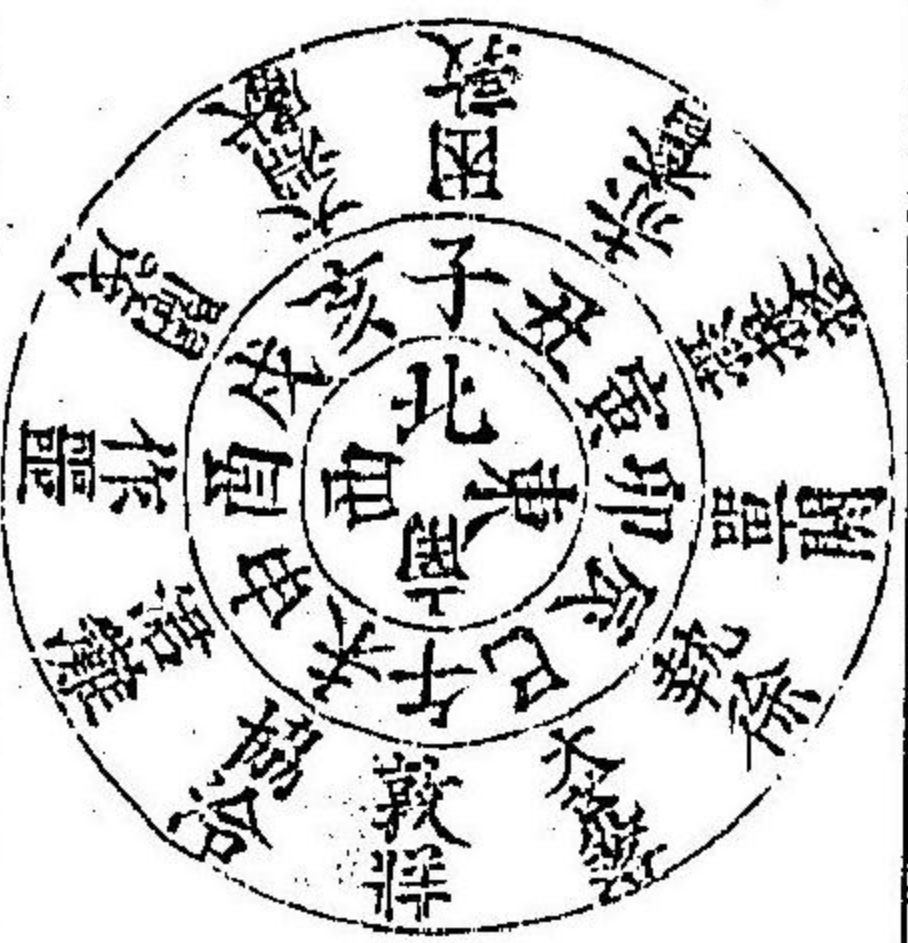 北
東
南
西
子
丑
寅
卯
辰
巳
午
未
申
酉
戌
亥
困敦
赤奮若
攝提格
單閼
執徐
大荒落
敦牂
協洽
涒灘
作噩
閹茂
大淵獻